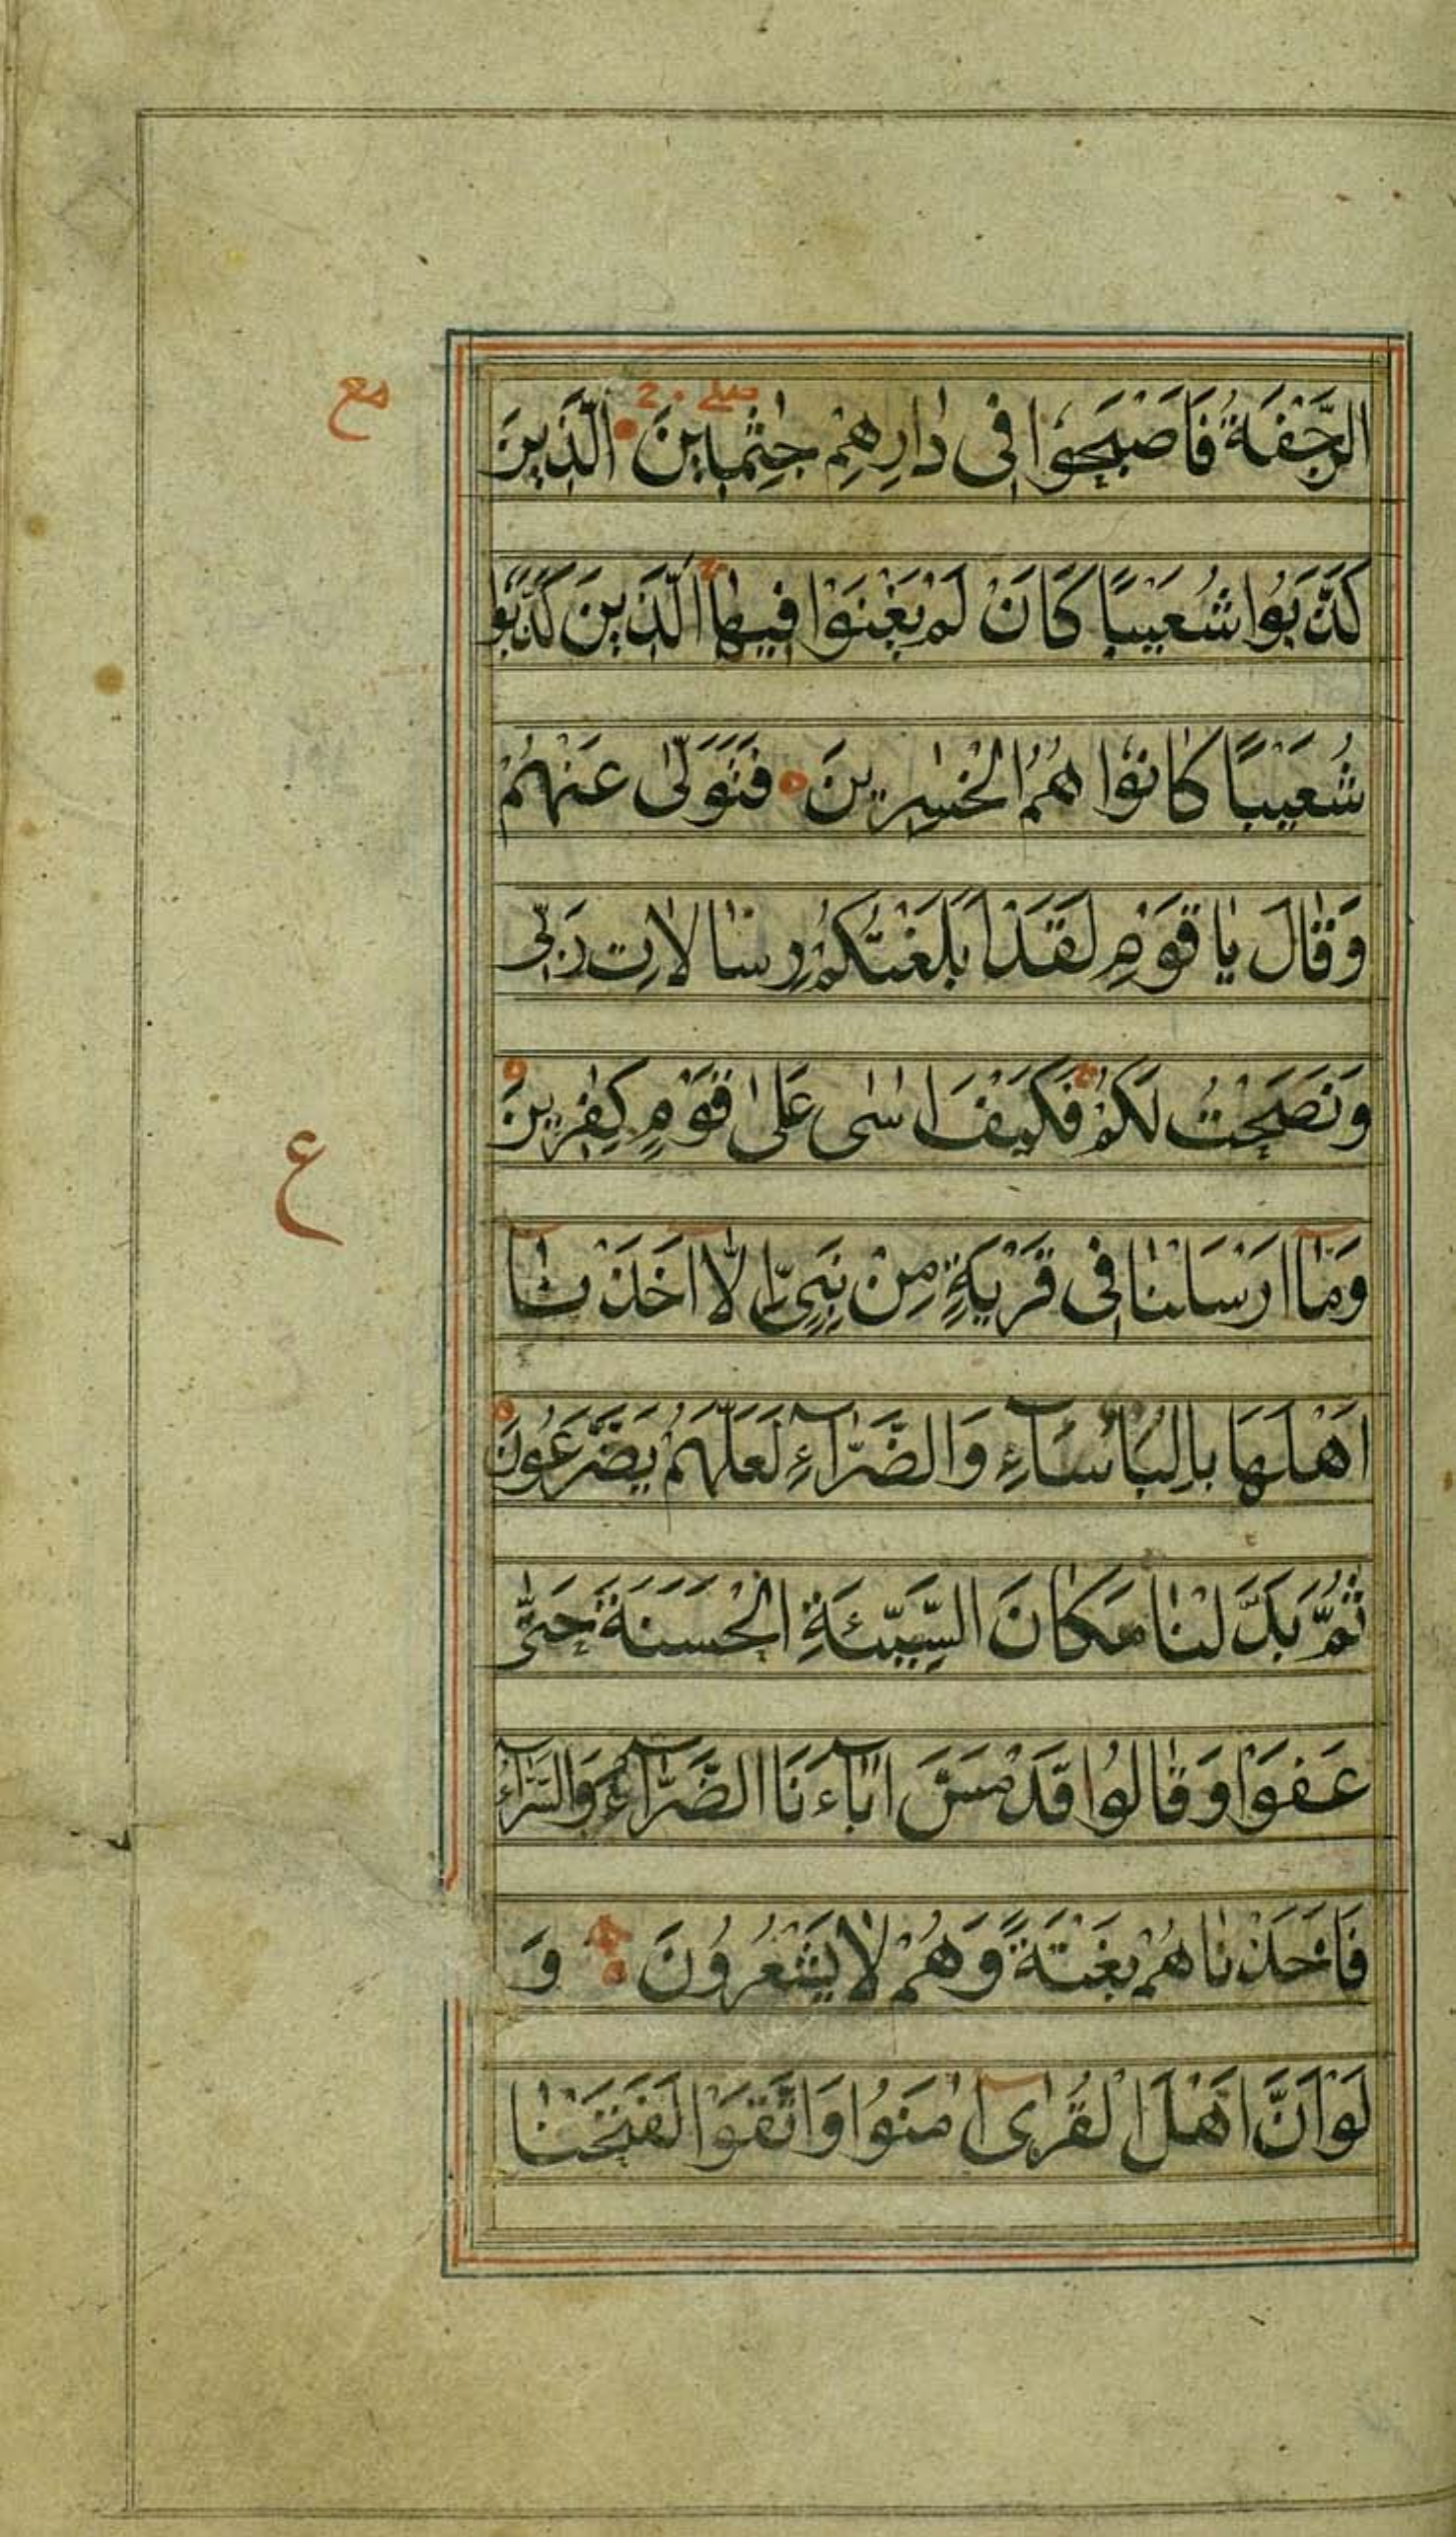 مع
الرَّجْفَةُ فَاَصْبَحُوْا فِى دٰارِهِمْ جٰثِمِينَ الَّذِينَ
كَذَّبُوا شُعَيْبًا كَاَنْ لَمْ يَغْنَوْا فِيهٰا الَّذِينَ كَذَّبُوا
شُعَيْبًا كٰانُوْا هُمُ الْخٰسِرِينَ فَتَوَلّٰى عَنْهُمْ
وَقٰالَ يٰا قَوْمِ لَقَدْ اَبْلَغْتُكُمْ رِسٰالاٰتِ رَبّى
وَنَصَحْتُ لَكُمْ فَكَيْفَ اٰسٰى عَلٰى قَوْمٍ كٰفِرِينَ
ع
وَمٰٓا اَرْسَلْنٰا فِى قَرْيَةٍ مِنْ نَبِىٍّ اِلآّٰ اَخَذْنٰٓا
اَهْلَهَا بِالْبَأْسَآءِ وَالضَّرّٰآءِ لَعَلَّهُمْ يَضَّرَّعُونَ
ثُمَّ بَدَّلْنٰا مَكٰانَ السَّيِّئَةِ الْحَسَنَةَ حَتّٰى
عَفَوْا وَقٰالُوا قَدْ مَسَّ اٰبٰٓاءَنَا الضَّرّٰآءُ وَالسَّرّٰآءُ
فَاَخَذْنٰاهُمْ بَغْتَةً وَهُمْ لاٰ يَشْعُرُونَ وَ
لَوْ اَنَّ اَهْلَ الْقُرٰىٓ اٰمَنُوا وَاتَّقَوْا لَفَتَحْنٰا